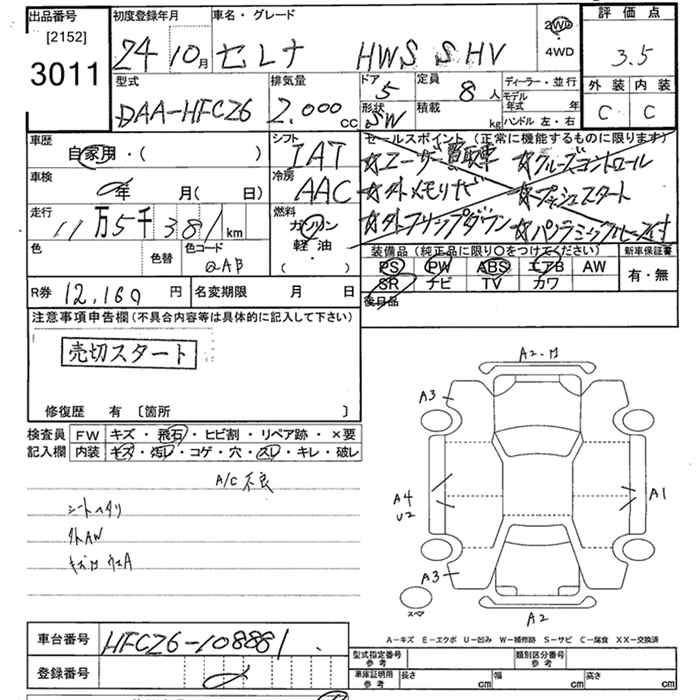 出品番号 初度登録年月 車名・グレード 2WD 評価点
[2152]
3011 24 10月 セレナ HWS S HV ・4WD 3.5
型式 排気量 ドア 定員 ディーラー・並行 外装 内装
DAA-HFC26 2.000cc 5 8人 モデル年式 年 C C
形状 積載 ハンドル 左・右
SW kg
車歴 シフト セールスポイント (正常に機能するものに限ります)
自家用・( ) IAT ☆ユーザー買取車 ☆クルーズコントロール
車検 冷房 ☆外メモリナビ ☆プッシュスタート
年 月( 日) AAC ☆外フリップダウン ☆パノラミックルーフ付
走行 燃料
11万5千381km ガソリン・軽油・( )
色 色替 色コード 装備品(純正品に限り○をつけてください) 新車保証書
QAB PS PW ABS エアB AW 有・無
R券 12,160円 名変期限 月 日 SR ナビ TV カワ
後日品
注意事項申告欄(不具合内容等は具体的に記入して下さい)
売切スタート
修復歴 有 〔箇所 〕
検査員 FW キズ・飛石・ヒビ割・リペア跡・×要
記入欄 内装 キズ・汚レ・コゲ・穴・スレ・キレ・破レ
A/C 不良
シートヘタリ
外AW
A2・M
A3
A4
U2
A1
A3
A2
スペア
A−キズ E−エクボ U−凹み W−補修跡 S−サビ C−腐食 XX−交換済
車台番号 HFC26-108881
登録番号
型式指定番号 参考 類別区分番号 参考
車庫証明用 参考 長さ cm 幅 cm 高さ cm